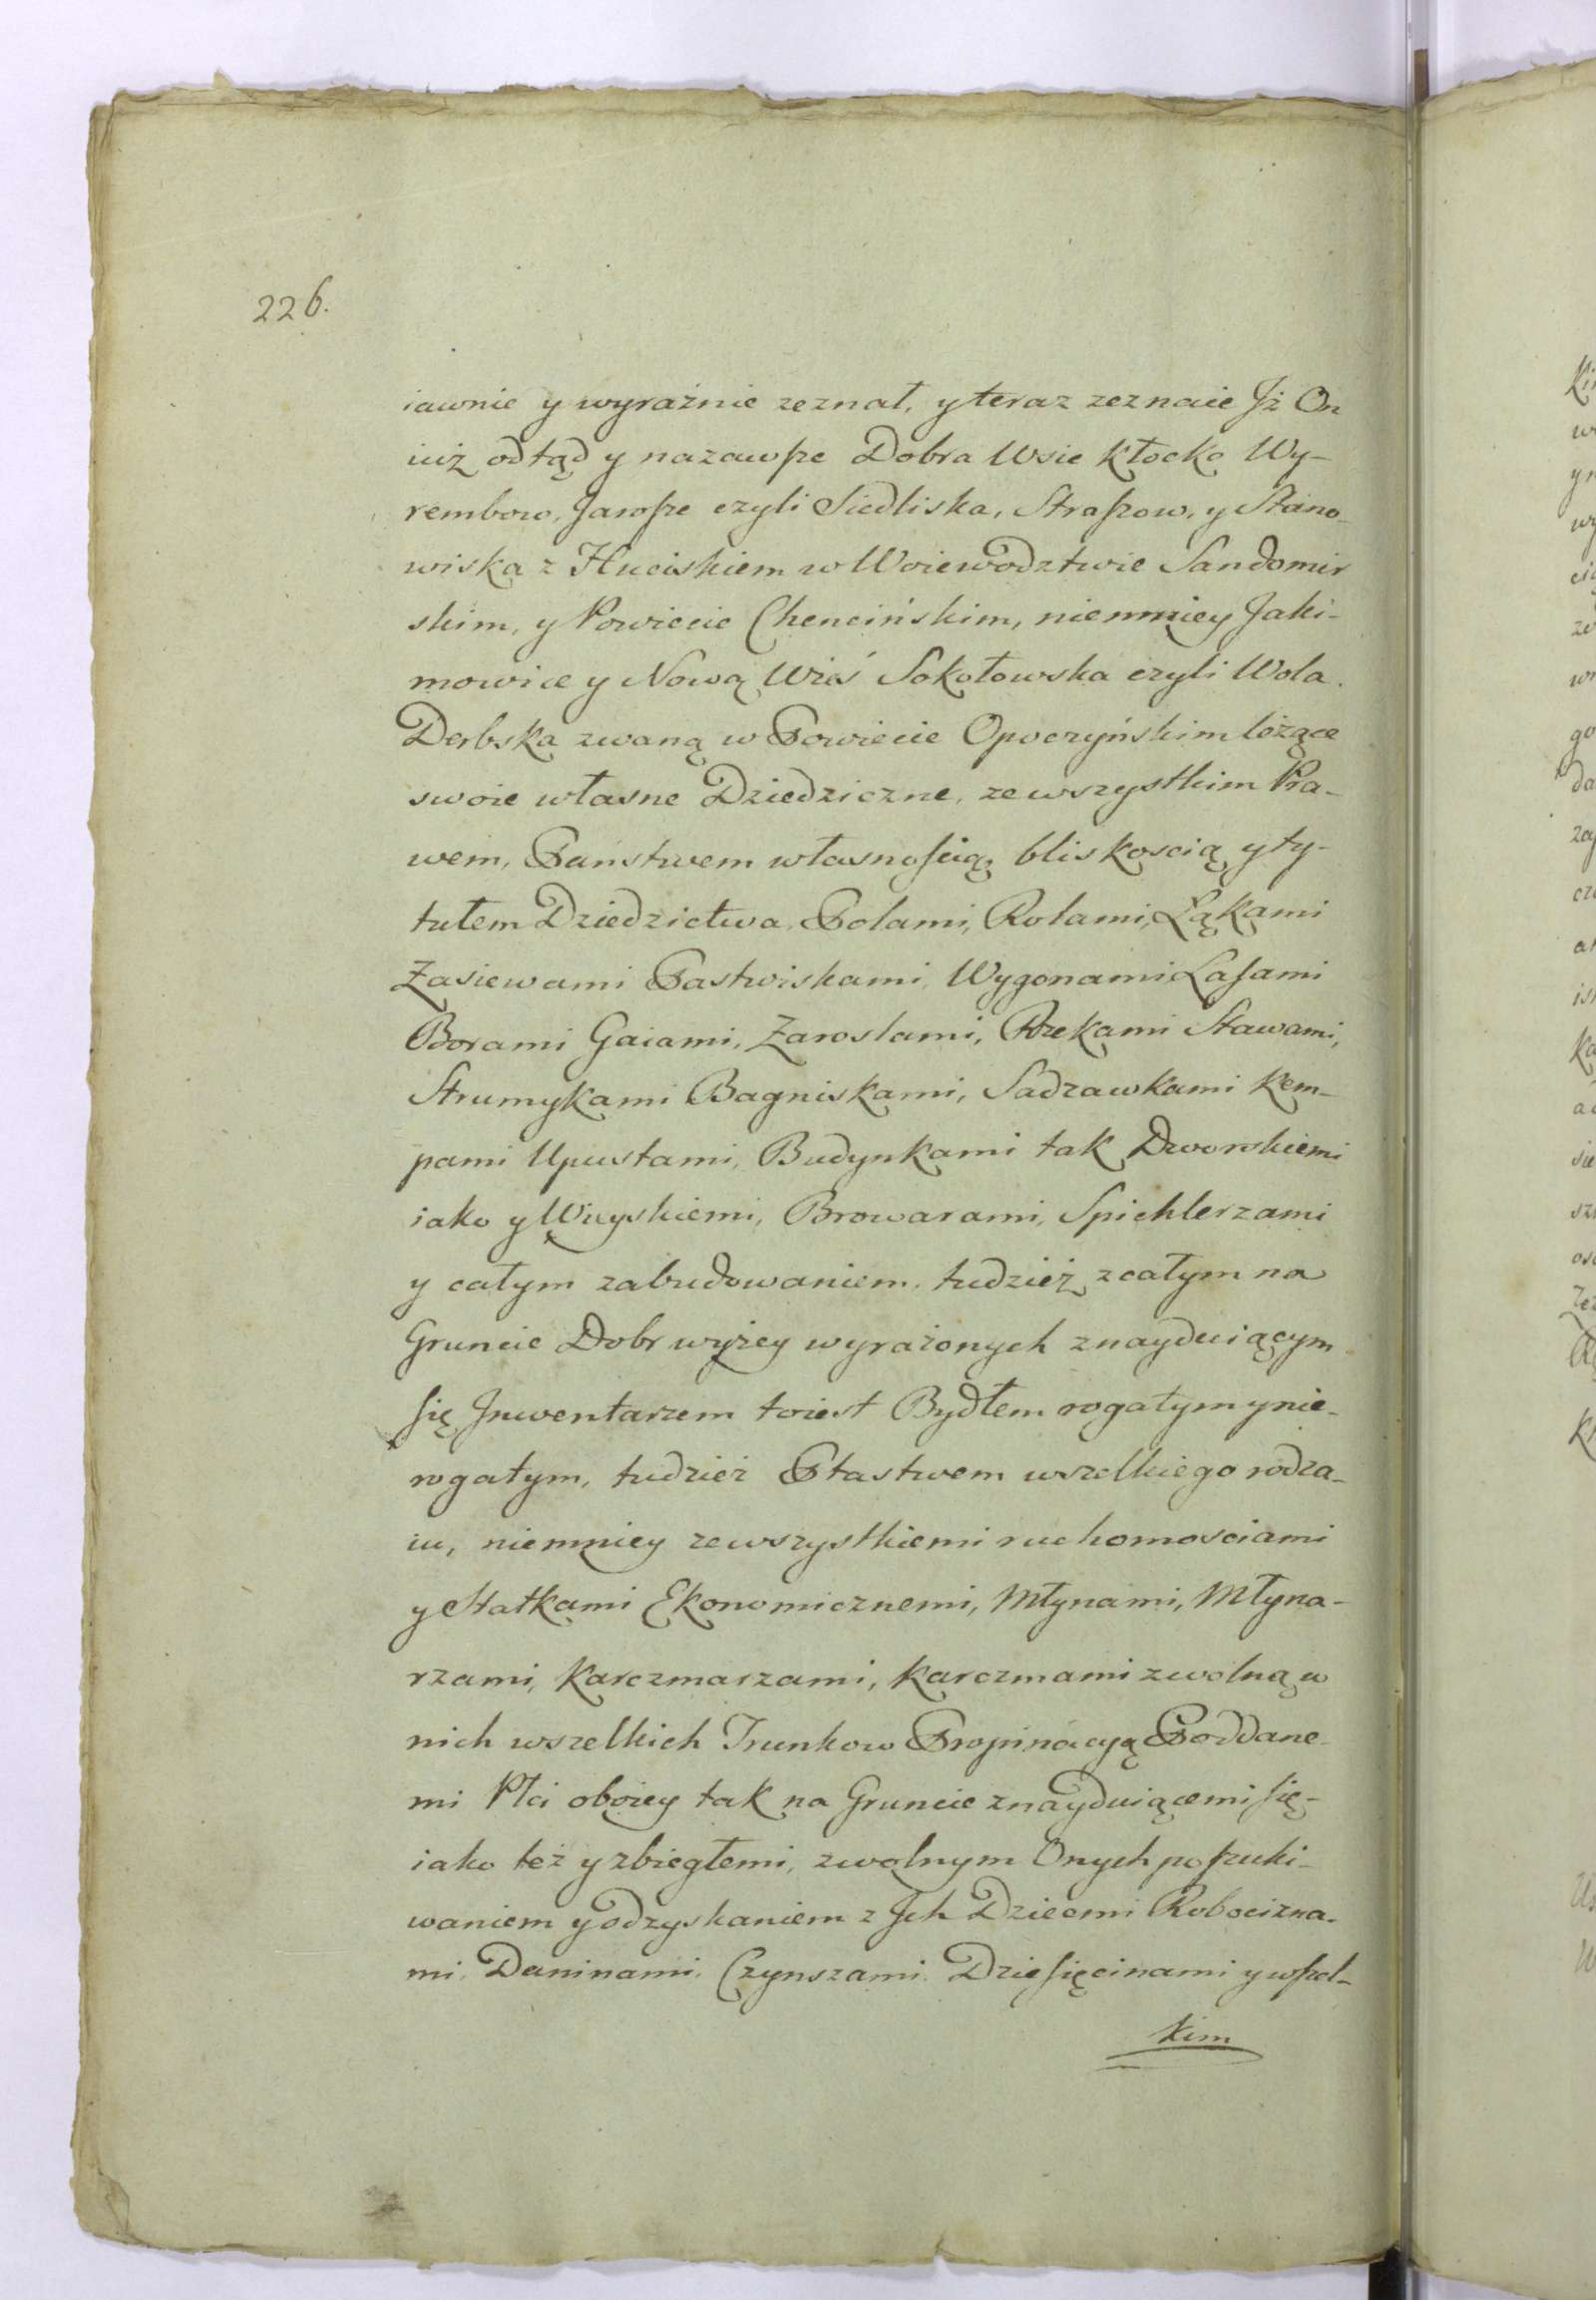 226.
iawnie y wyraźnie zeznał, y teraz zeznaie Jż On
iuż odtąd y nazawsze Dobra Wsie Kłocko Wy-
rembow, Jarosze czyli Siedliska, Straszow, y Stano-
wiska z Huciskiem w Woiewodztwie Sandomir
skim, y Powiecie Chencińskim, niemniey Jaki-
mowice y Nową Wieś Sokołowska czyli Wola
Derbską zwaną w Powiecie Opoczyńskim leżące
swoie własne Dziedziczne, ze wszystkim Pra-
wem, Państwem własnością, bliskoscią y ty-
tułem Dziedzictwa, Polami, Rolami, Łąkami
Zasiewami Pastwiskami, Wygonami Lasami
Borami Gaiami, Zaroslami, Rzekami Stawami,
Strumykami Bagniskami, Sadzawkami Kem-
pami Upustami, Budynkami tak Dworskiemi
iako y Wieyskiemi, Browarami, Spichlerzami
y całym zabudowaniem, tudzież z całym na
Gruncie Dobr wyżey wyrażonych znayduiącym
się Jnwentarzem toiest Bydłem rogatym y nie-
rogatym, tudzież Ptastwem wszelkiego rodza-
iu, niemniey ze wszystkiemi ruchomosciami
y Statkami Ekonomicznemi, Młynami, Młyna-
rzami, Karczmarzami, Karczmami z wolną w
nich wszelkich Trunkow Propinacyą Poddane-
mi Płci oboiey tak na Gruncie znayduiącemi się-
iako też y zbiegłemi, z wolnym Onych poszuki-
waniem y odzyskaniem z Jch Dziecmi Robocizna-
mi, Daninami, Czynszami, Dziesięcinami y wszel-
kim